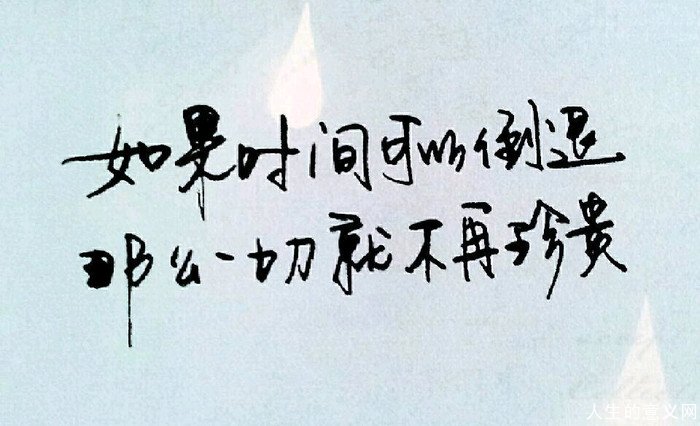 如果时间可以倒退
那么一切就不再珍贵
人生的意义网